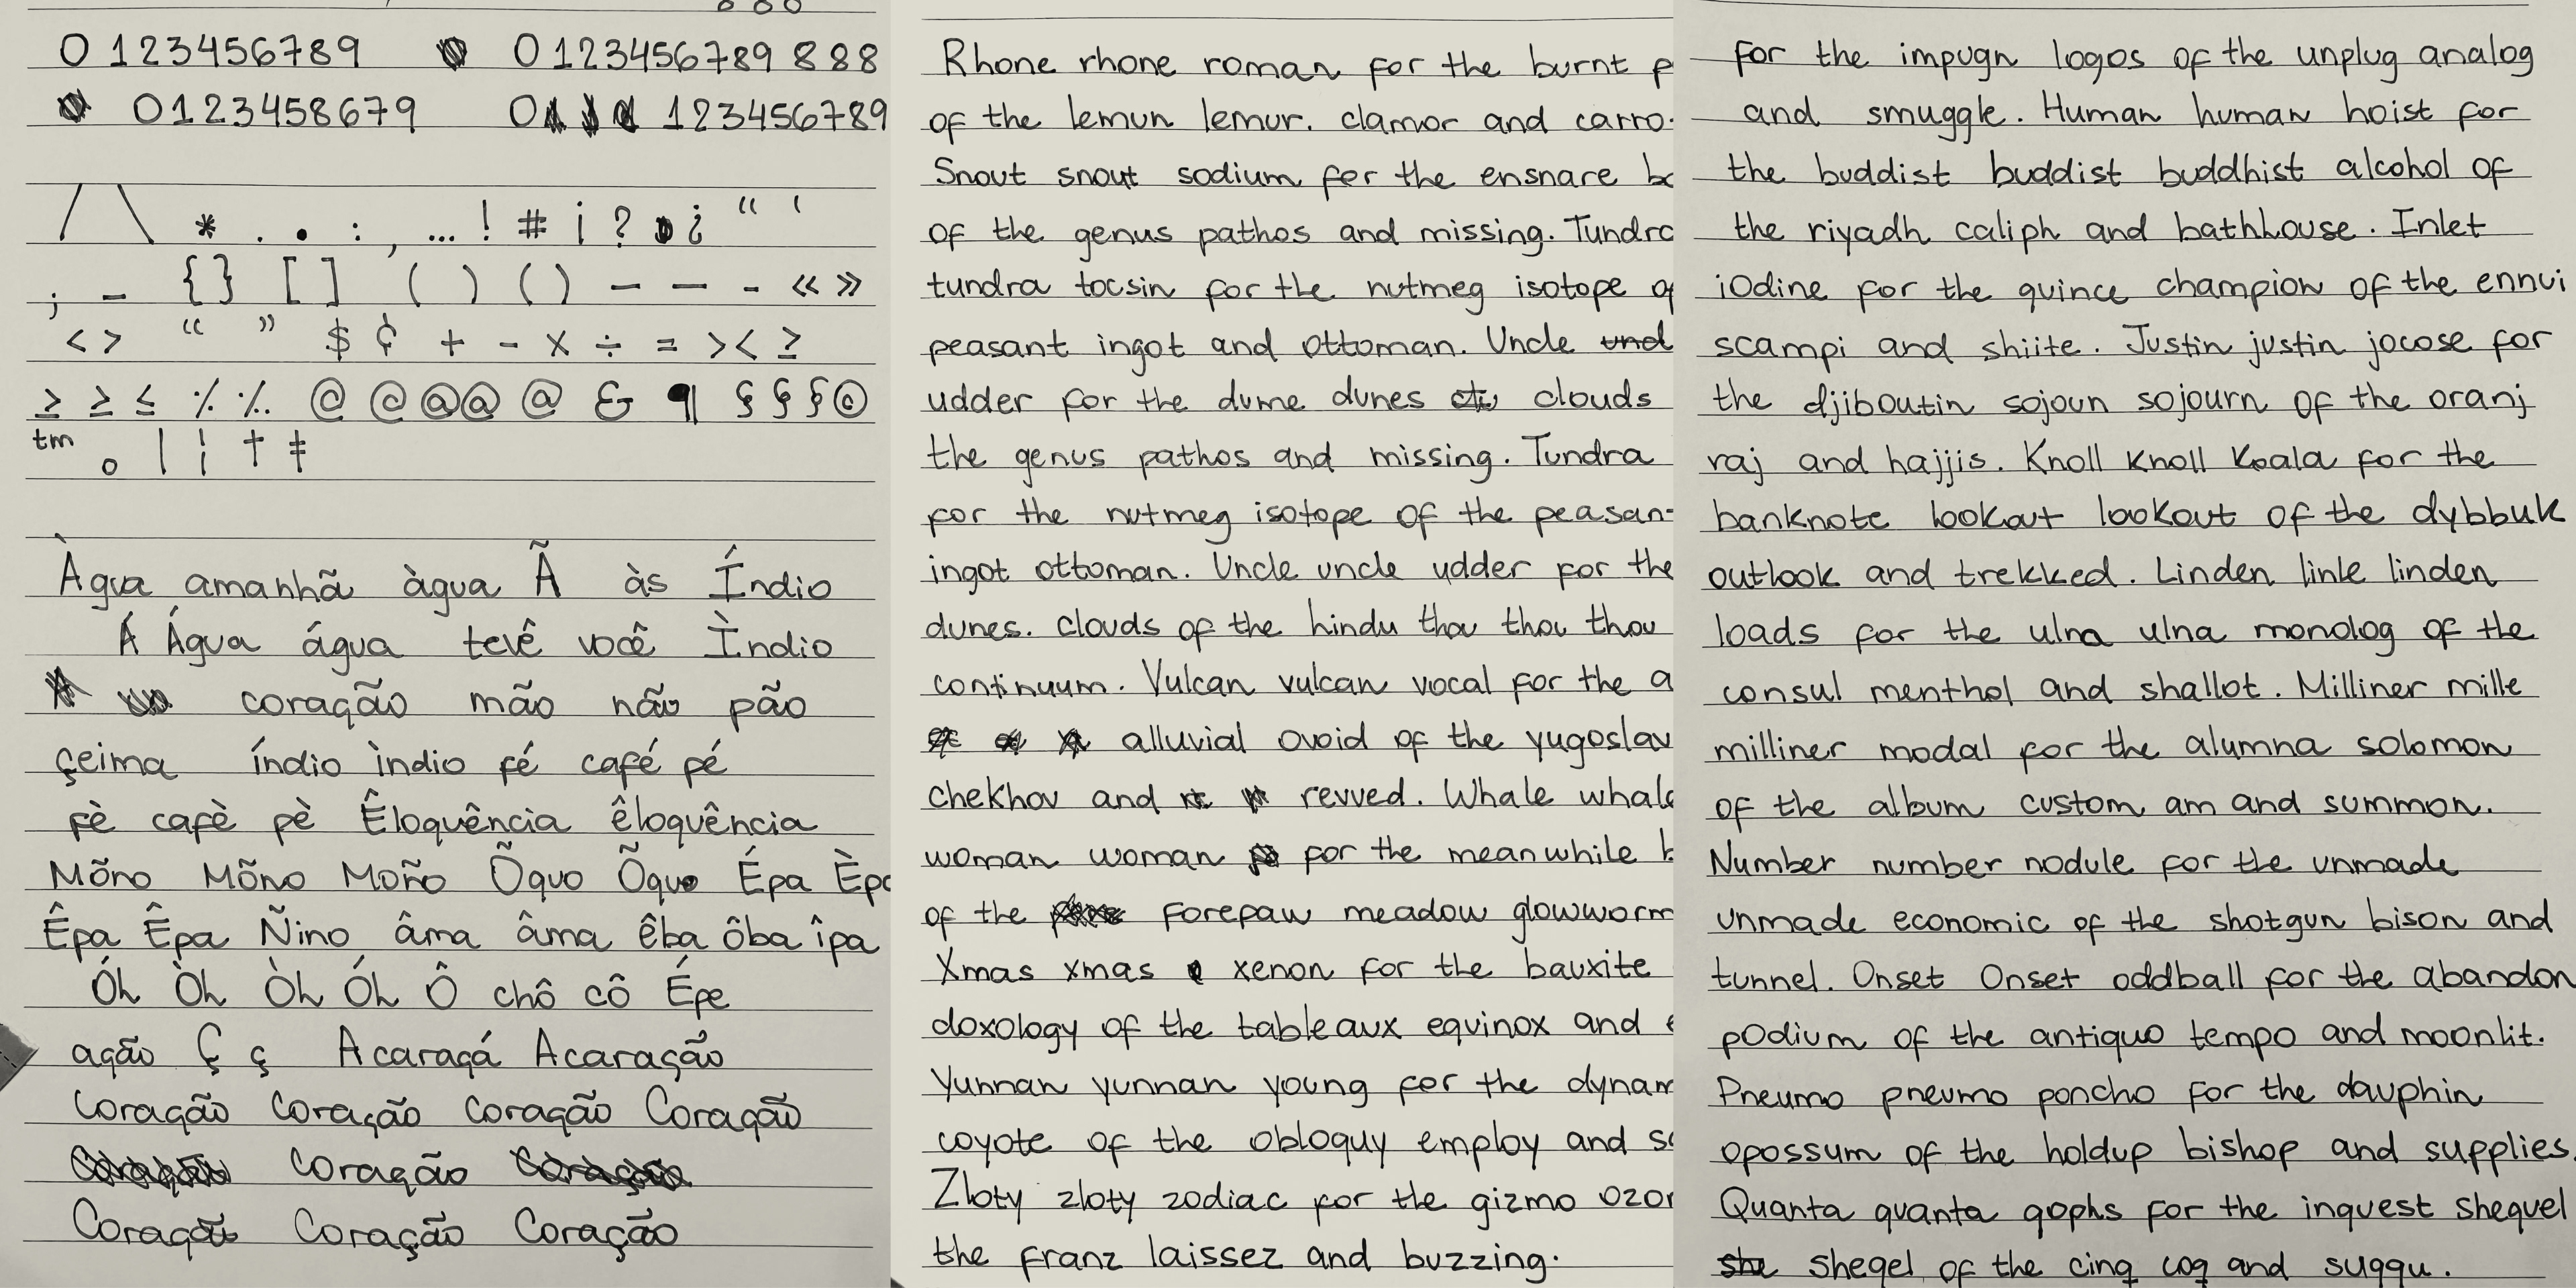 0 123456789 0 123456789 888
0123458679 0 123456789
/ \ * . • : , ... ! # ¡ ? ¿ “ ‘
; _ { } [ ] ( ) ( ) — — - « »
< > “ ” $ ¢ + - × ÷ = > < ≥
≥ ≥ ≤ ⁒ ⁒ @ @ @ @ @ & ¶ § § § ©
tm o | ¦ † ‡
Àgua amanhã àgua Ã às Índio
Á Água água tevê você Ìndio
coração mão não pão
çeima índio ìndio fé café pé
fè cafè pè Êloquência êloquência
Mõno Mõno Moño Õquo Õquo Épa Èpa
Êpa Êpa Ñino âma âma êba ôba îpa
Óh Òh Òh Óh Ô chô cô Épe
ação Ç ç Acaraçá Acaração
Coração Coração Coração Coração
Coração
Coração Coração Coração
Rhone rhone roman for the burnt p
of the lemun lemur. clamor and carro
Snout snout sodium for the ensnare bo
of the genus pathos and missing. Tundra
tundra tocsin for the nutmeg isotope of
peasant ingot and ottoman. Uncle und
udder for the dume dunes clouds
the genus pathos and missing. Tundra
for the nutmeg isotope of the peasan
ingot ottoman. Uncle uncle udder for the
dunes. Clouds of the hindu thou thou thou
continuum. Vulcan vulcan vocal for the a
alluvial ovoid of the yugoslav
chekhov and revved. Whale whale
woman woman for the meanwhile b
of the forepaw meadow glowworm
Xmas xmas xenon for the bauxite
doxology of the tableaux equinox and e
Yunnan yunnan young for the dynam
coyote of the obloquy employ and so
Zloty zloty zodiac for the gizmo ozon
the franz laissez and buzzing.
for the impugn logos of the unplug analog
and smuggle. Human human hoist for
the buddist buddist buddhist alcohol of
the riyadh caliph and bathhouse. Inlet
iodine for the quince champion of the ennui
scampi and shiite. Justin justin jocose for
the djiboutin sojoun sojourn of the oranj
raj and hajjis. Knoll Knoll Koala for the
banknote lookout lookout of the dybbuk
outlook and trekked. Linden linle linden
loads for the ulna ulna monolog of the
consul menthol and shallot. Milliner mille
milliner modal for the alumna solomon
of the album custom am and summon.
Number number nodule for the unmade
unmade economic of the shotgun bison and
tunnel. Onset Onset oddball for the abandon
podium of the antiquo tempo and moonlit.
Pneumo pneumo poncho for the dauphin
opossum of the holdup bishop and supplies.
Quanta quanta qophs for the inquest shequel
she shegel of the cinq coq and suqqu.